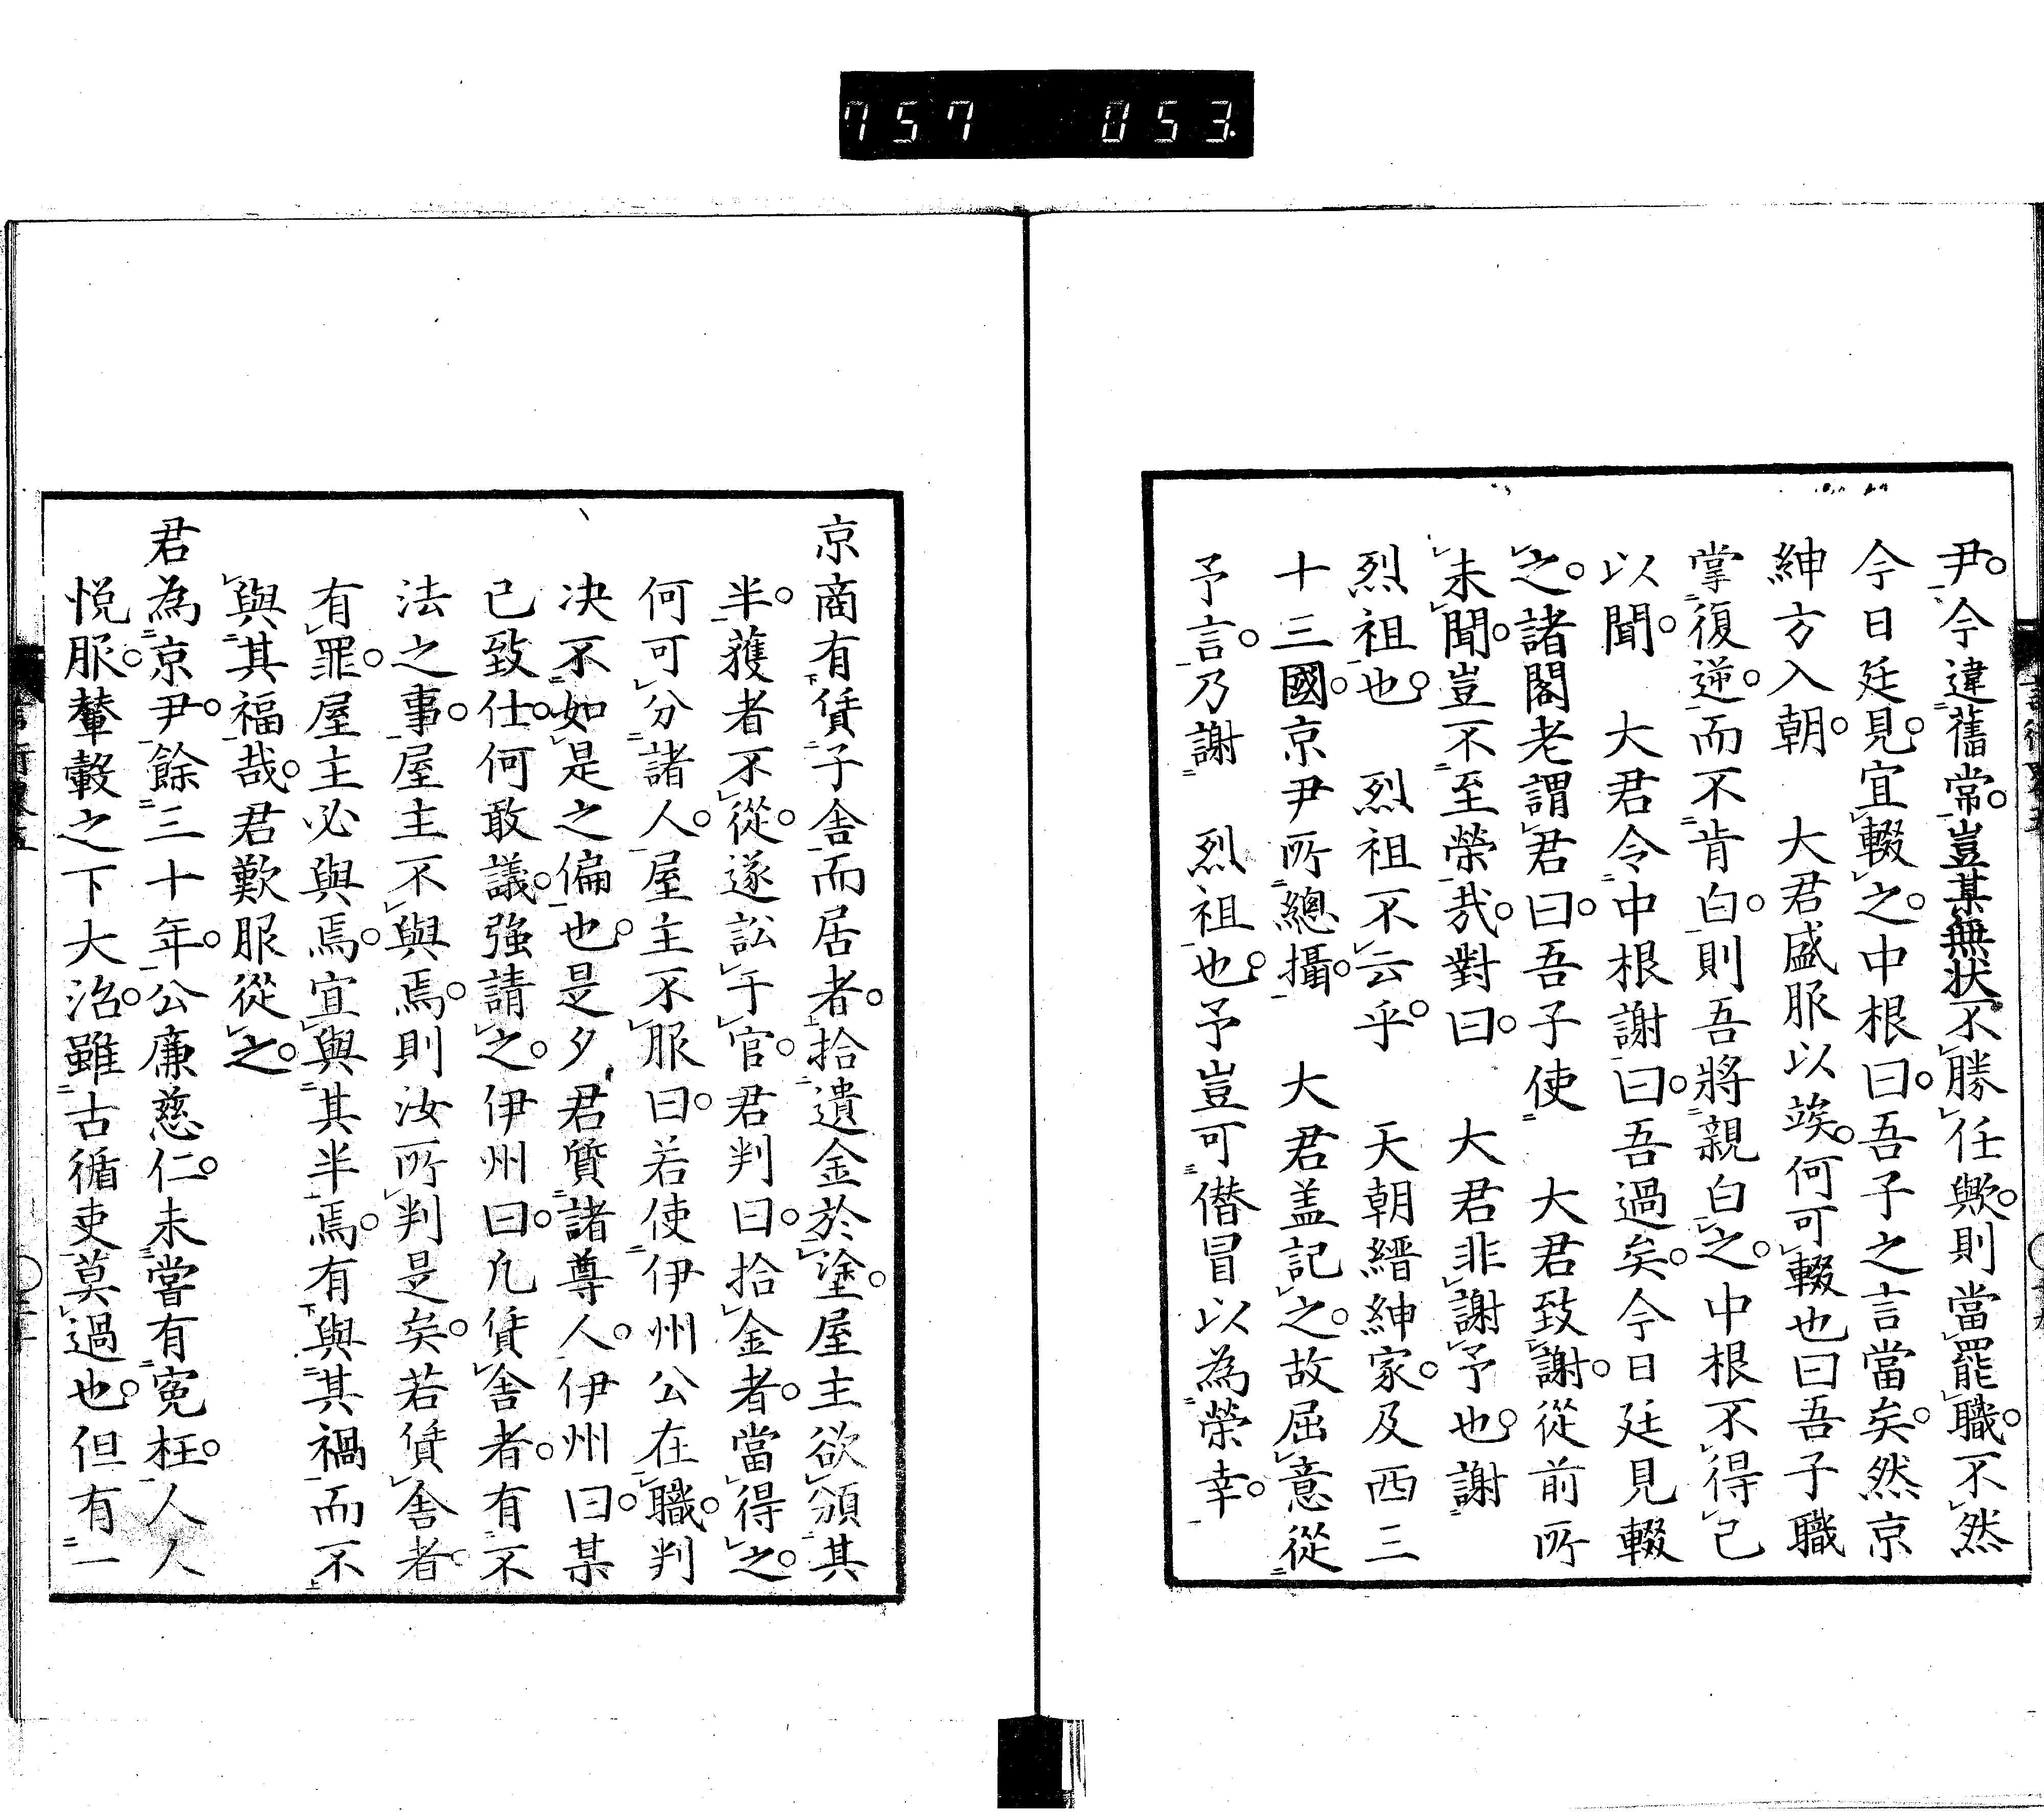 757 053
尹。今違舊常。豈某無状不勝任歟。則當罷職。不然
今日廷見。宜輟之。中根曰。吾子之言當矣。然京
紳方入朝。大君盛服以竢。何可輟也曰吾子職
掌復逆。而不肯白。則吾將親白之。中根不得已
以聞。大君令中根謝曰。吾過矣。今日廷見輟
之。諸閣老謂君曰。吾子使大君致謝。從前所
未聞。豈不至榮哉。對曰。大君非謝予也。謝
烈祖也。烈祖不云乎。天朝縉紳家。及西三
十三國。京尹所總攝。大君盖記之。故屈意從
予言。乃謝烈祖也。予豈可僭冒以為榮幸。
京商有賃子舎而居者。拾遺金於塗。屋主欲頒其
半。獲者不從。遂訟于官。君判曰。拾金者。當得之。
何可分諸人。屋主不服曰。若使伊州公在職。判
决不如是之偏也。是夕君質諸尊人。伊州曰。某
已致仕。何敢議。強請之。伊州曰。凡賃舎者。有不
法之事。屋主不與焉。則汝所判是矣。若賃舎者
有罪。屋主必與焉。宜與其半焉。有與其禍而不
與其福哉。君歎服從之。
君為京尹。餘三十年。公廉慈仁。未嘗有寃枉。人人
悦服。輦轂之下大治。雖古循吏莫過也。但有一